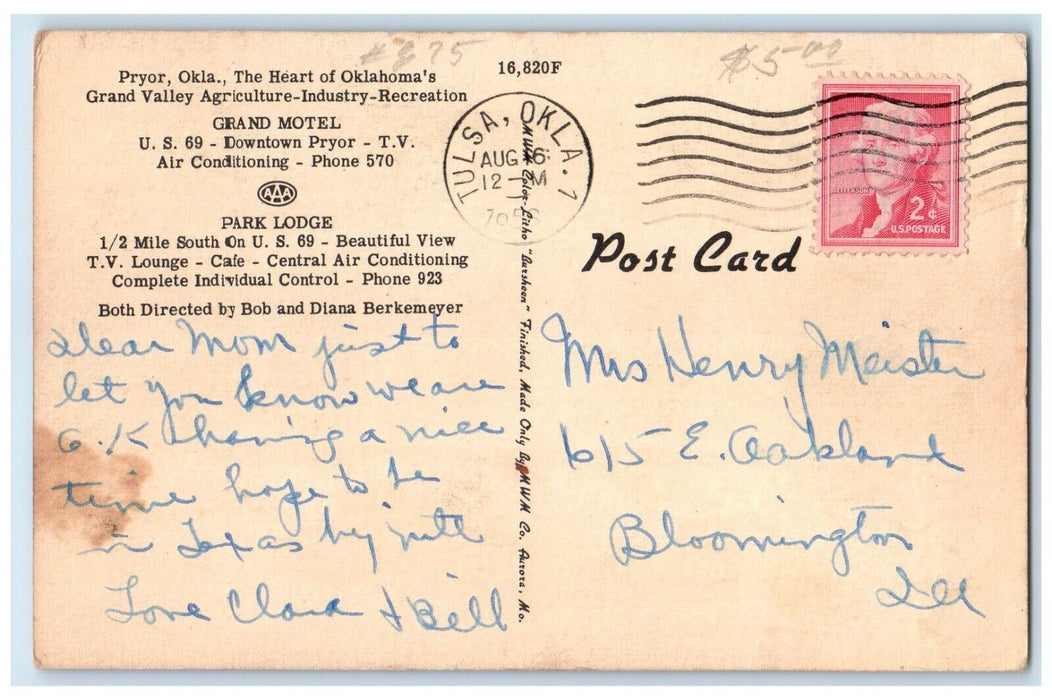 #675
$5.00
16,820F
Pryor, Okla., The Heart of Oklahoma's
Grand Valley Agriculture-Industry-Recreation
GRAND MOTEL
U. S. 69 - Downtown Pryor - T.V.
Air Conditioning - Phone 570
AAA
PARK LODGE
1/2 Mile South On U. S. 69 - Beautiful View
T.V. Lounge - Cafe - Central Air Conditioning
Complete Individual Control - Phone 923
Both Directed by Bob and Diana Berkemeyer
Dear Mom just to
let you know we are
O.K having a nice
time hope to be
in Texas by nite
Love Clara & Bill
MWM Color-Litho "Bursheen" Finished, Made Only By MWM Co. Aurora, Mo.
TULSA, OKLA. 1
AUG 6
12 - M
Post Card
JEFFERSON
2¢
U.S. POSTAGE
Mrs Henry Meister
615 E. Oakland
Bloomington
Ill